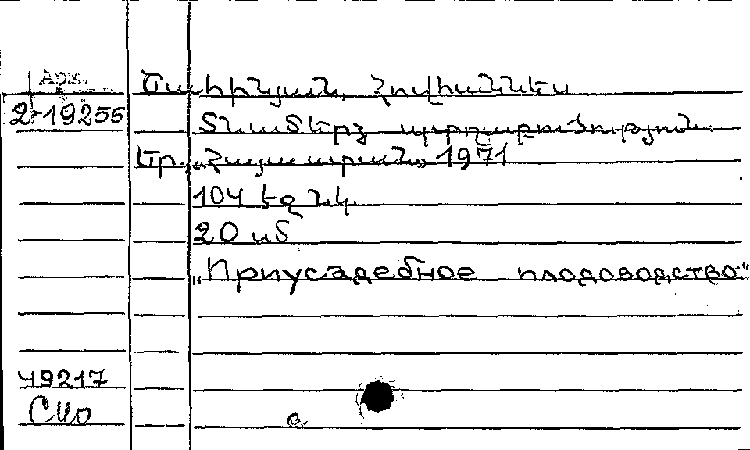 Арм.
Շահինյան, Հովհաննես
2-19255
Տնամերձ պտղաբուծություն.
Եր., «Հայաստան» 1971
104 էջ նկ.
20 սմ
„Приусадебное плодоводство“
49217